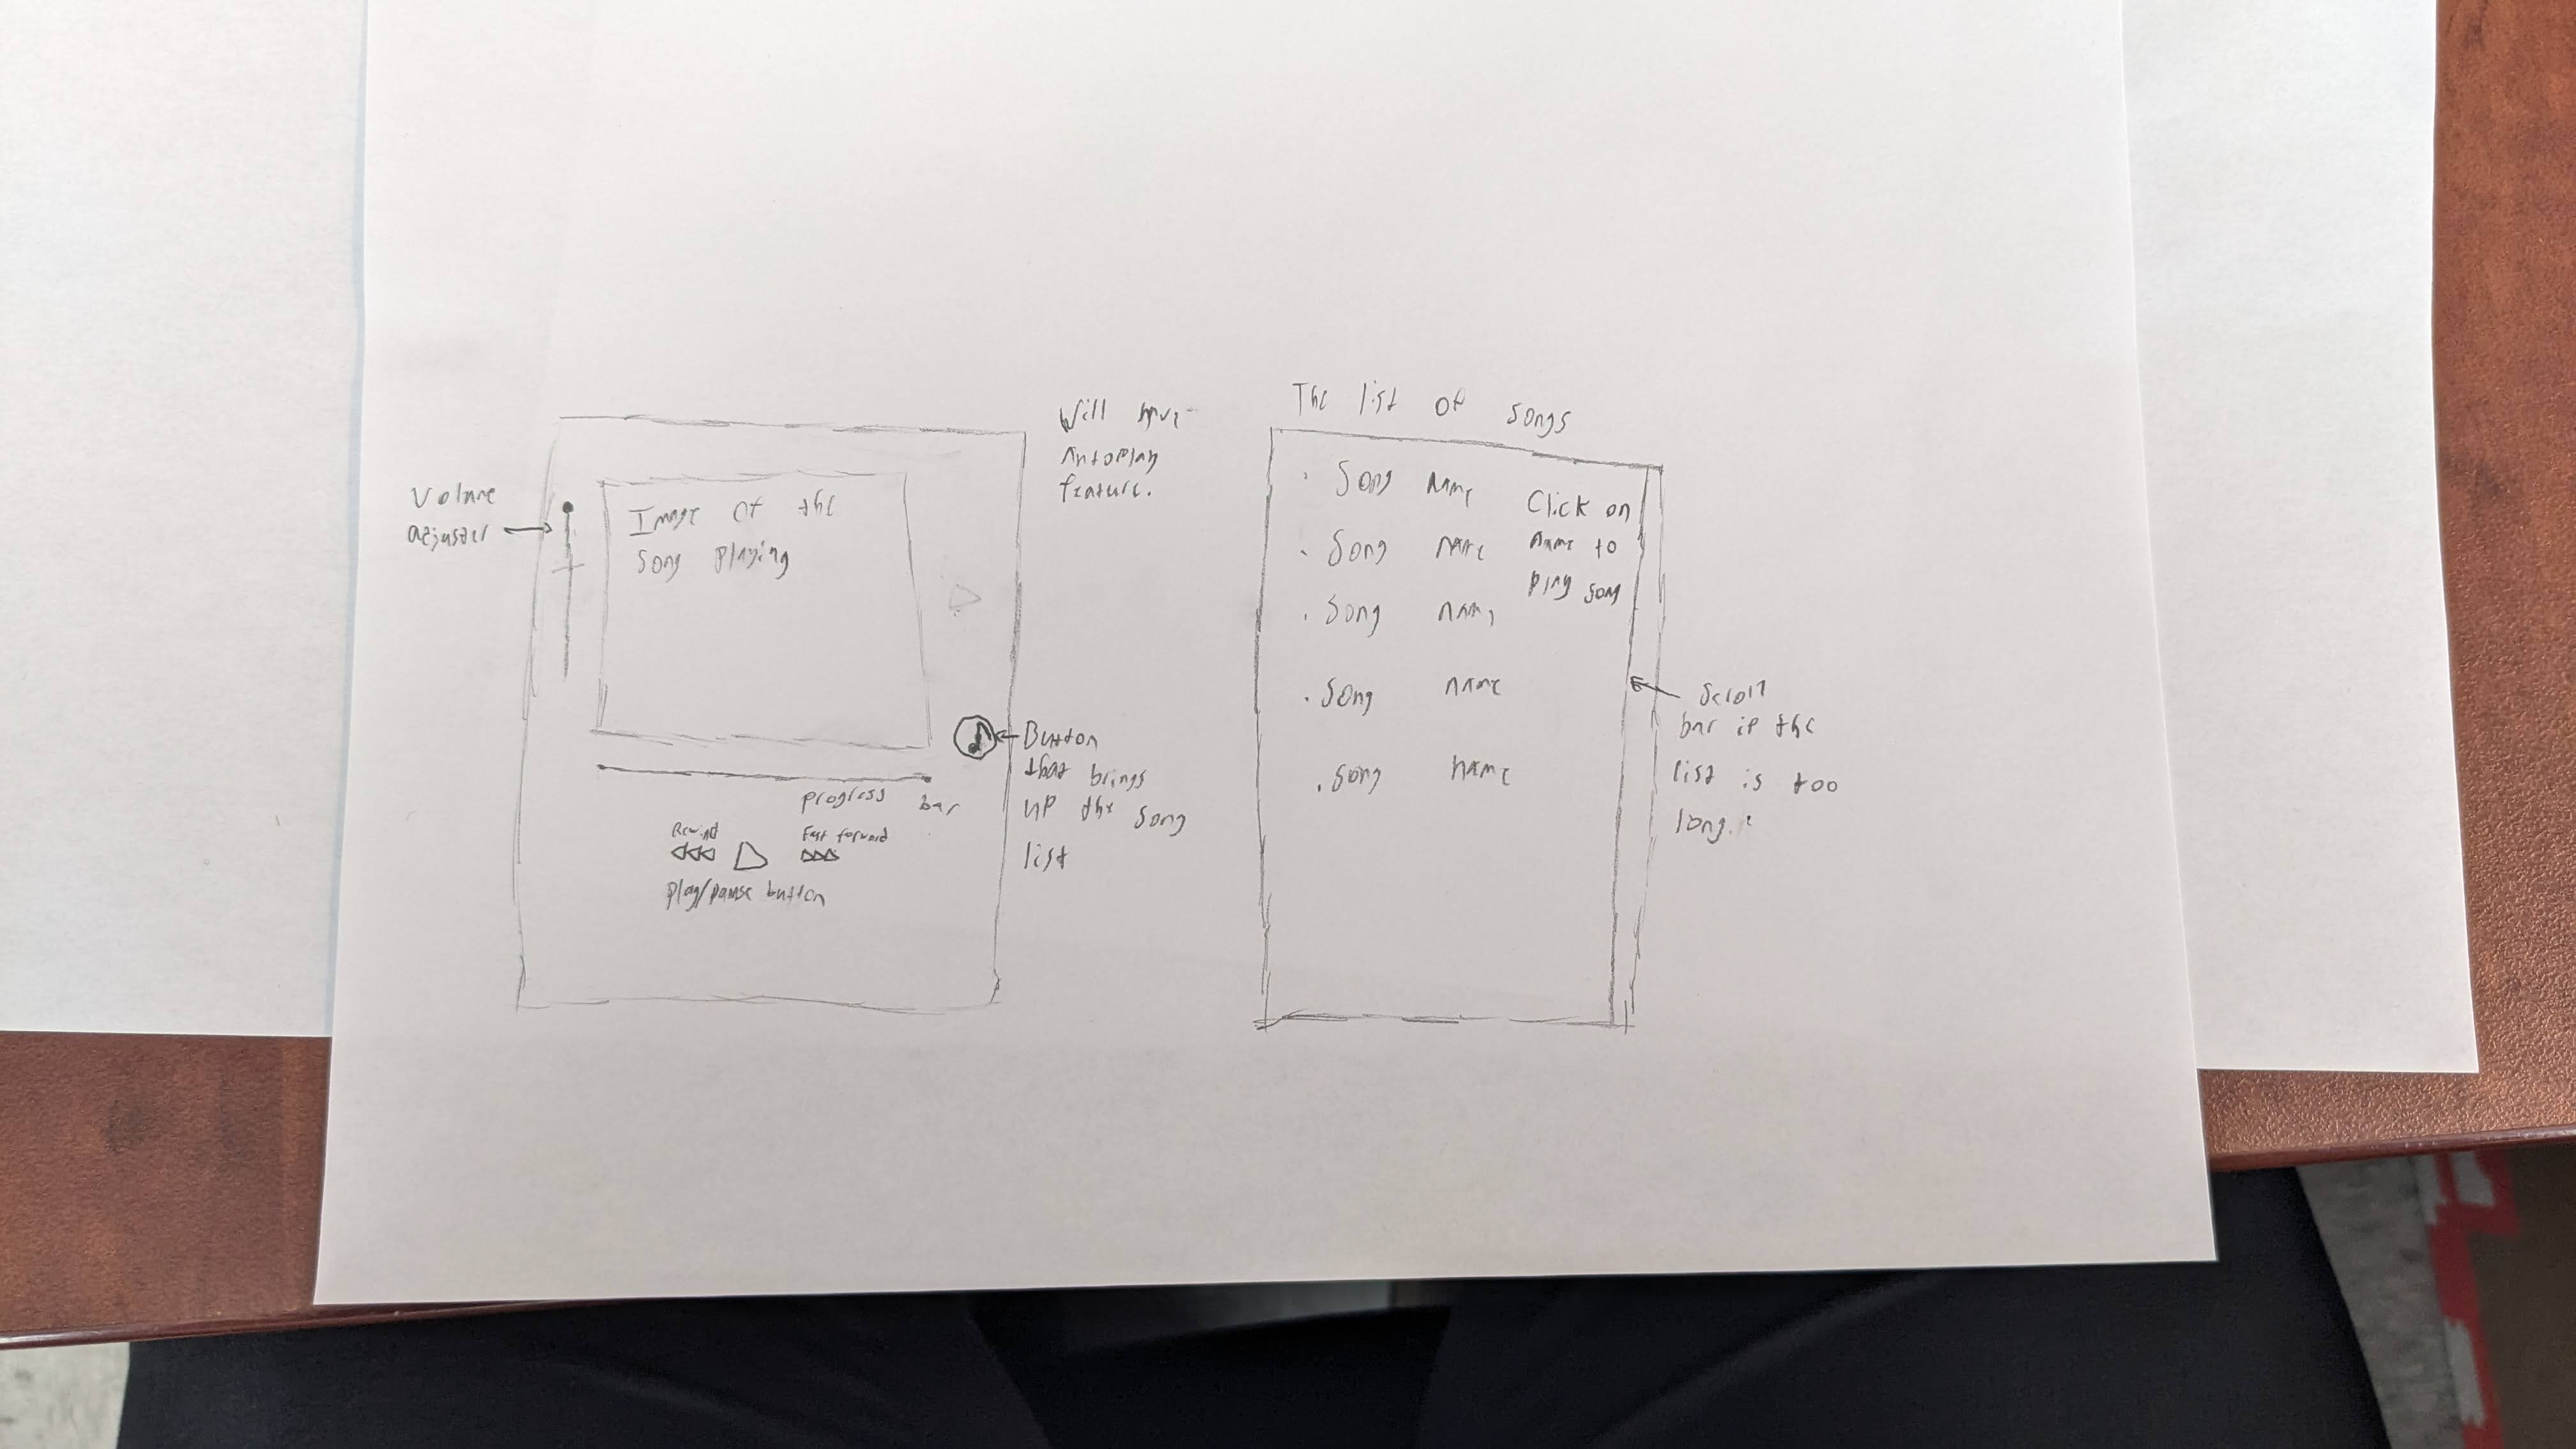 Volume
adjuster
Image of the
song playing
progress bar
Rewind
Fast forward
play/pause button
Will have
Autoplay
feature.
Button
that brings
up the song
list
The list of songs
. Song name
. Song name
. Song name
. Song name
. Song name
Click on
name to
play song
Scroll
bar if the
list is too
long.